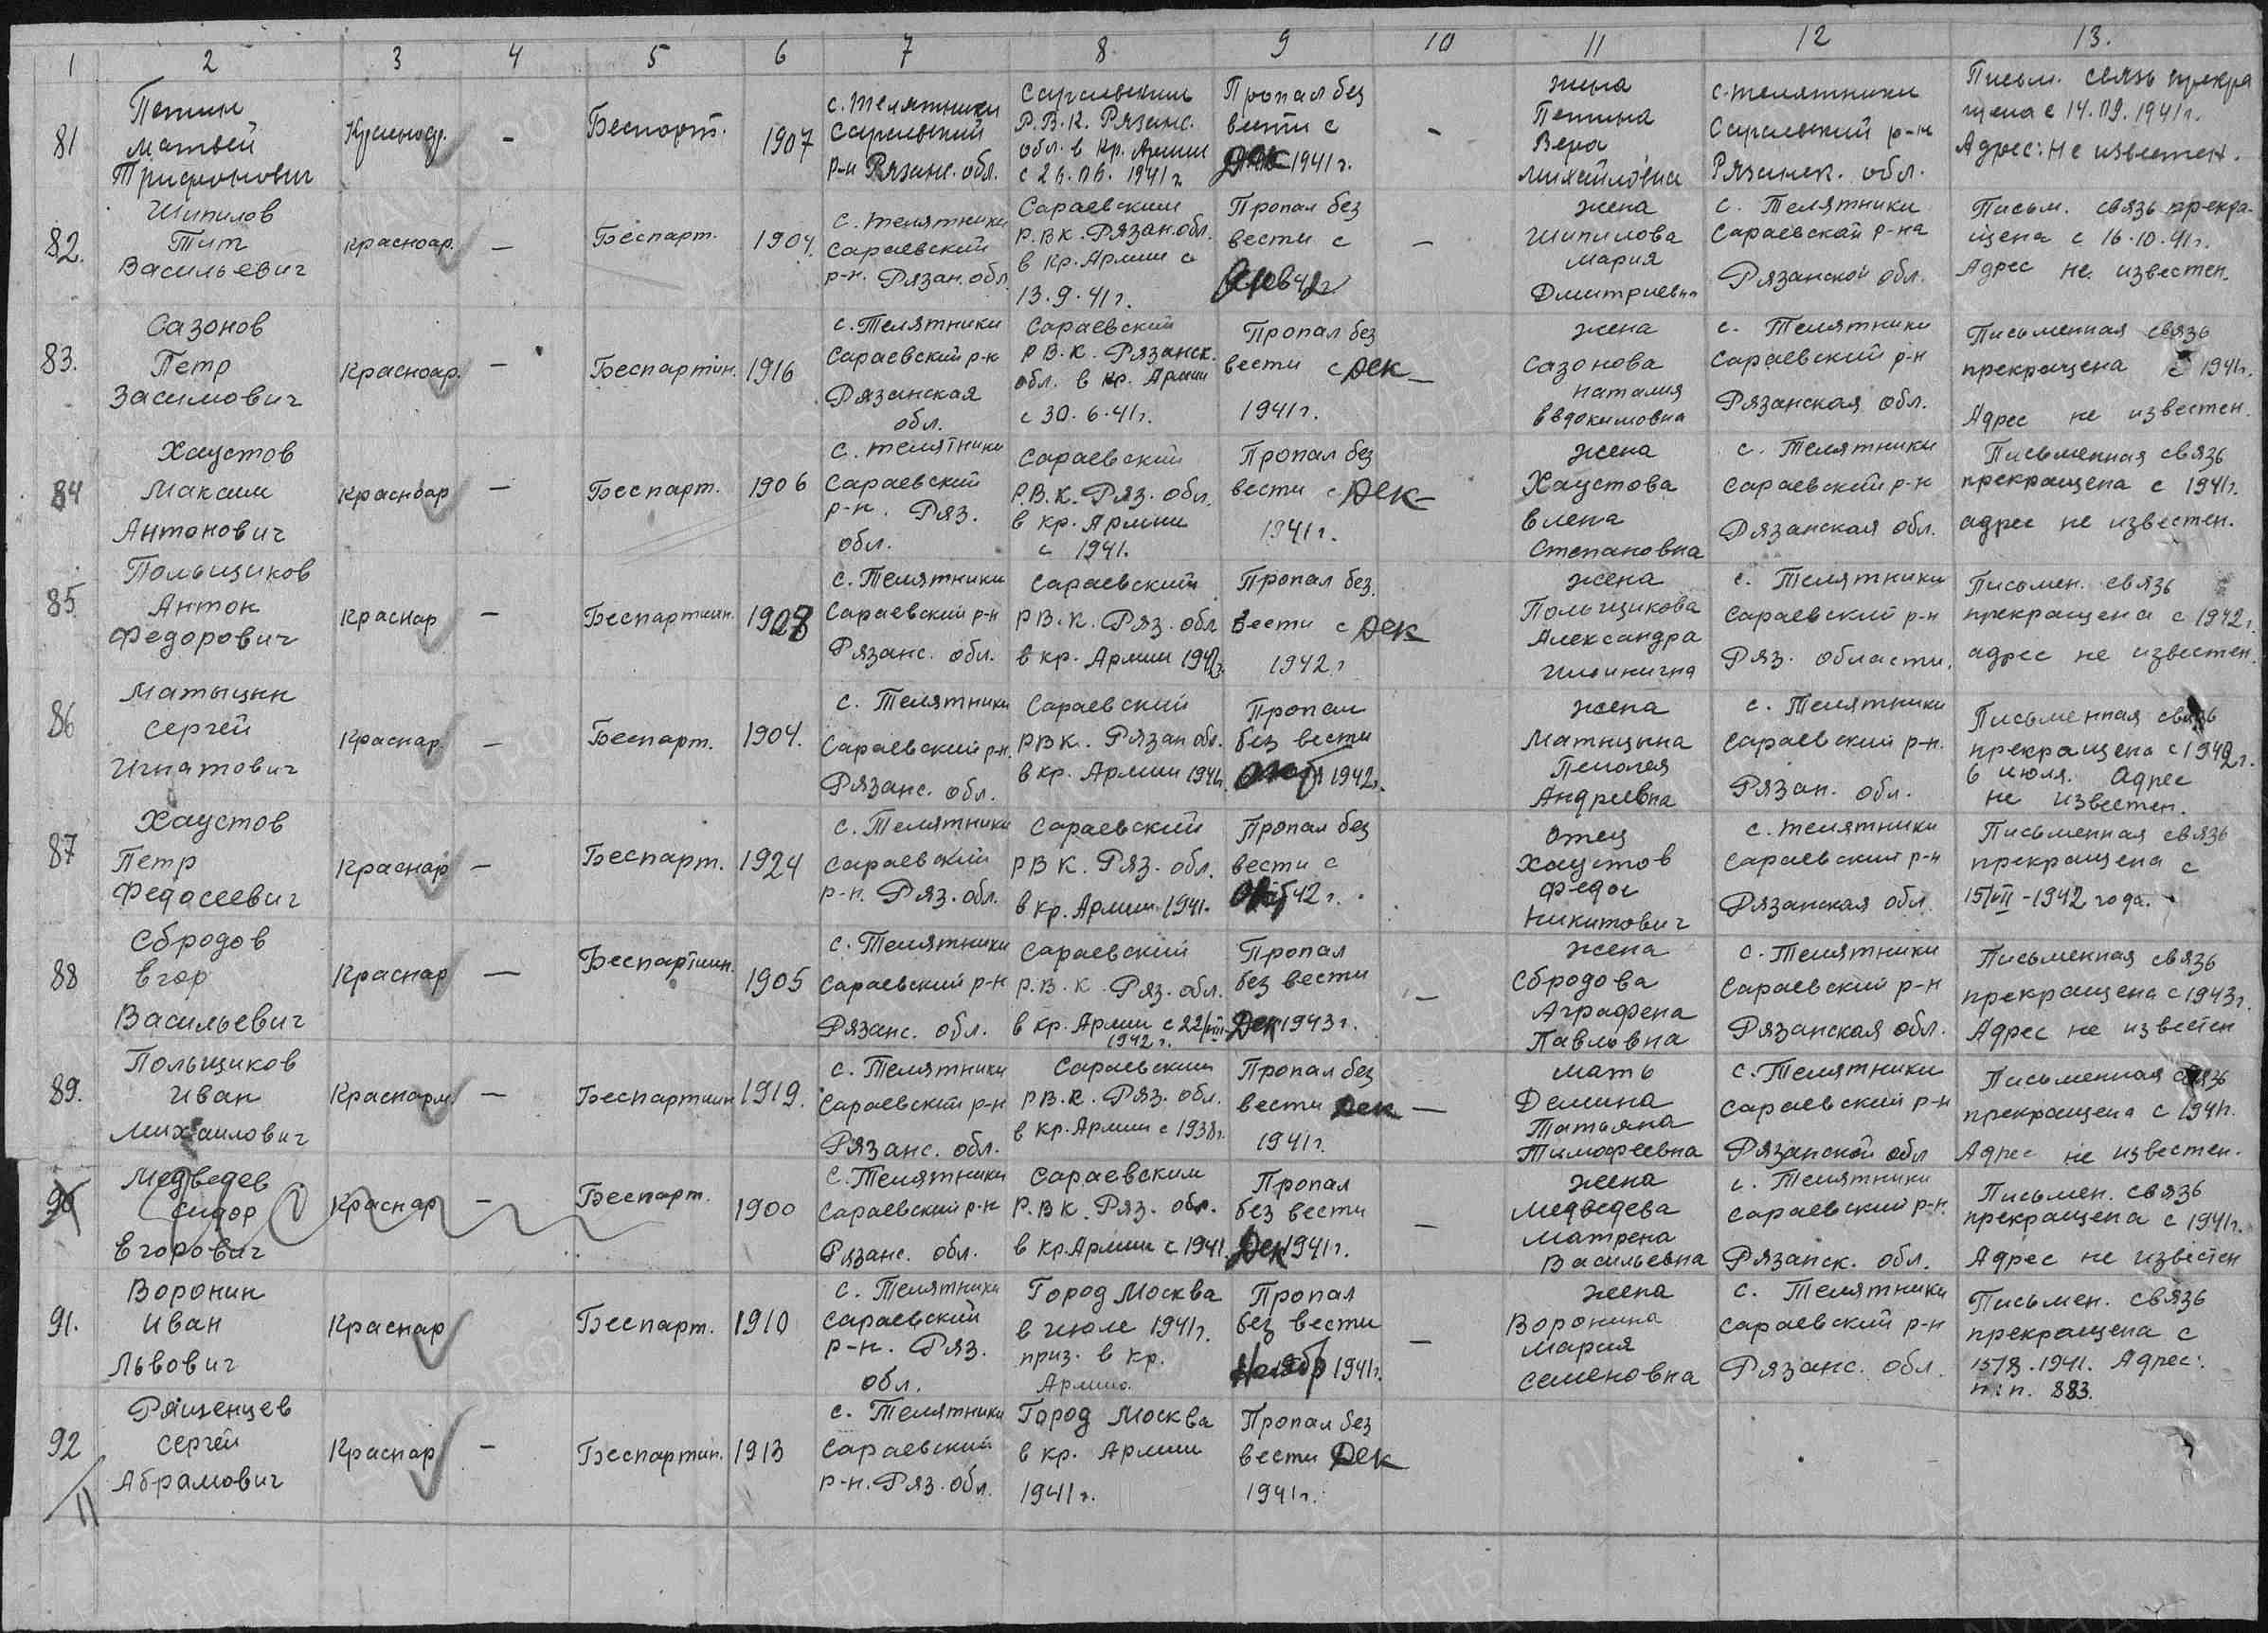 1 2 3 4 5 6 7 8 9 10 11 12 13.
81
Петин
Матвей
Трифонович
Красноар.
-
Беспарт.
1907
с. Телятники
Сараевский
р-н Рязанс. обл.
Сараевским
Р.В.К. Рязанс.
обл. в Кр. Армии
с 26.06.1941 г
Пропал без
вести с
Дек 1941 г.
-
жена
Петина
Вера
Михайловна
с. Телятники
Сараевский р-н
Рязанск. обл.
Письм. связь прекра
щена с 14.09.1941 г.
Адрес: не известен.
82.
Шипилов
Тит
Васильевич
Красноар.
-
Беспарт.
1904.
с. Телятники
Сараевский
р-н. Рязан. обл.
Сараевским
Р.ВК. Рязан. обл.
в кр. Армии с
13.9.41 г.
Пропал без
вести с
42 г
-
жена
Шипилова
Мария
Дмитриевна
с. Телятники
Сараевской р-на
Рязанской обл.
Письм. связь прекра-
щена с 16.10.41 г.
Адрес не известен.
83.
Сазонов
Петр
Засимович
Красноар.
-
Беспартийн.
1916
с. Телятники
Сараевский р-н
Рязанская
обл.
Сараевский
РВ.К. Рязанск.
обл. в кр. Армии
с 30.6.41 г.
Пропал без
вести с Дек
1941 г.
-
жена
Сазонова
Наталия
Евдокимовна
с. Телятники
Сараевский р-н
Рязанская обл.
Письменная связь
прекращена с 1941 г.
Адрес не известен.
84
Хаустов
Максим
Антонович
Красноар
-
Беспарт.
1906
с. Телятники
Сараевский
р-н. Ряз.
обл.
Сараевский
Р.В.К. Ряз. обл.
в кр. Армии
с 1941.
Пропал без
вести с Дек
1941 г.
-
жена
Хаустова
Елена
Степановна
с. Телятники
Сараевский р-н
Рязанская обл.
Письменная связь
прекращена с 1941 г.
адрес не известен.
85
Польщиков
Антон
Федорович
Краснар
-
Беспартийн.
1908
с. Телятники
Сараевский р-н
Рязанс. обл.
Сараевский
РВ.К. Ряз. обл
в кр. Армии 1942 г
Пропал без
вести с Дек
1942 г
жена
Польщикова
Александра
Ильинична
с. Телятники
Сараевский р-н
Ряз. области.
Письмен. связь
прекращена с 1942 г.
адрес не известен.
86
Матыцин
Сергей
Игнатович
Краснар.
-
Беспарт.
1904.
с. Телятники
Сараевский р-н.
Рязанс. обл.
Сараевский
РВК. Рязан обл.
в кр. Армии 1941 г.
Пропал
без вести
Октб 1942 г.
жена
Матыцына
Пелогея
Андреевна
с. Телятники
Сараевский р-н.
Рязан. обл.
Письменная связь
прекращена с 1942 г.
6 июля. Адрес
не известен.
87
Хаустов
Петр
Федосеевич
Краснар
-
Беспарт.
1924
с. Телятники
Сараевский
р-н. Ряз. обл.
Сараевский
РВК. Ряз. обл.
в кр. Армии 1941.
Пропал без
вести с
Окт 42 г.
Отец
Хаустов
Федос
Никитович
с. Телятники
Сараевский р-н
Рязанская обл.
Письменная связь
прекращена с
15/VII-1942 года.
88
Сбродов
Егор
Васильевич
Краснар
-
Беспартийн.
1905
с. Телятники
Сараевский р-н
Рязанс. обл.
Сараевский
Р.В.К. Ряз. обл.
в кр. Армии с 22/VIII
1942 г.
Пропал
без вести
Дек 1943 г.
-
жена
Сбродова
Аграфена
Павловна
с. Телятники
Сараевский р-н
Рязанская обл.
Письменная связь
прекращена с 1943 г.
Адрес не известен
89.
Польщиков
Иван
Михаилович
Краснарм
-
Беспартийн
1919.
с. Телятники
Сараевский р-н
Рязанс. обл.
Сараевский
РВ.К. Ряз. обл.
в кр. Армии с 1938 г.
Пропал без
вести Дек
1941 г.
-
мать
Демина
Татьяна
Тимофеевна
с. Телятники
Сараевский р-н
Рязанской обл
Письменная связь
прекращена с 1941 г.
Адрес не известен.
90
Медведев
Сидор
Егорович
Краснар
-
Беспарт.
1900
с. Телятники
Сараевский р-н
Рязанс. обл.
Сараевским
Р.ВК. Ряз. обл.
в кр. Армии с 1941.
Пропал
без вести
Дек 1941 г.
-
жена
Медведева
Матрена
Васильевна
с. Телятники
Сараевский р-н.
Рязанск. обл.
Письмен. связь
прекращена с 1941 г.
Адрес не известен
91.
Воронин
Иван
Львович
Краснар
Беспарт.
1910
с. Телятники
Сараевский
р-н. Ряз.
обл.
Город Москва
в июле 1941 г.
приз. в Кр.
Армию.
Пропал
без вести
Ноябр 1941 г.
-
жена
Воронина
Мария
Семеновна
с. Телятники
Сараевский р-н
Рязанс. обл.
Письмен. связь
прекращена с
1941. Адрес:
п: п. 883.
92
11
Рященцев
Сергей
Абрамович
Краснар
-
Беспартийн.
1913
с. Телятники
Сараевский
р-н. Ряз. обл.
Город Москва
в кр. Армии
1941 г.
Пропал без
вести Дек
1941 г.